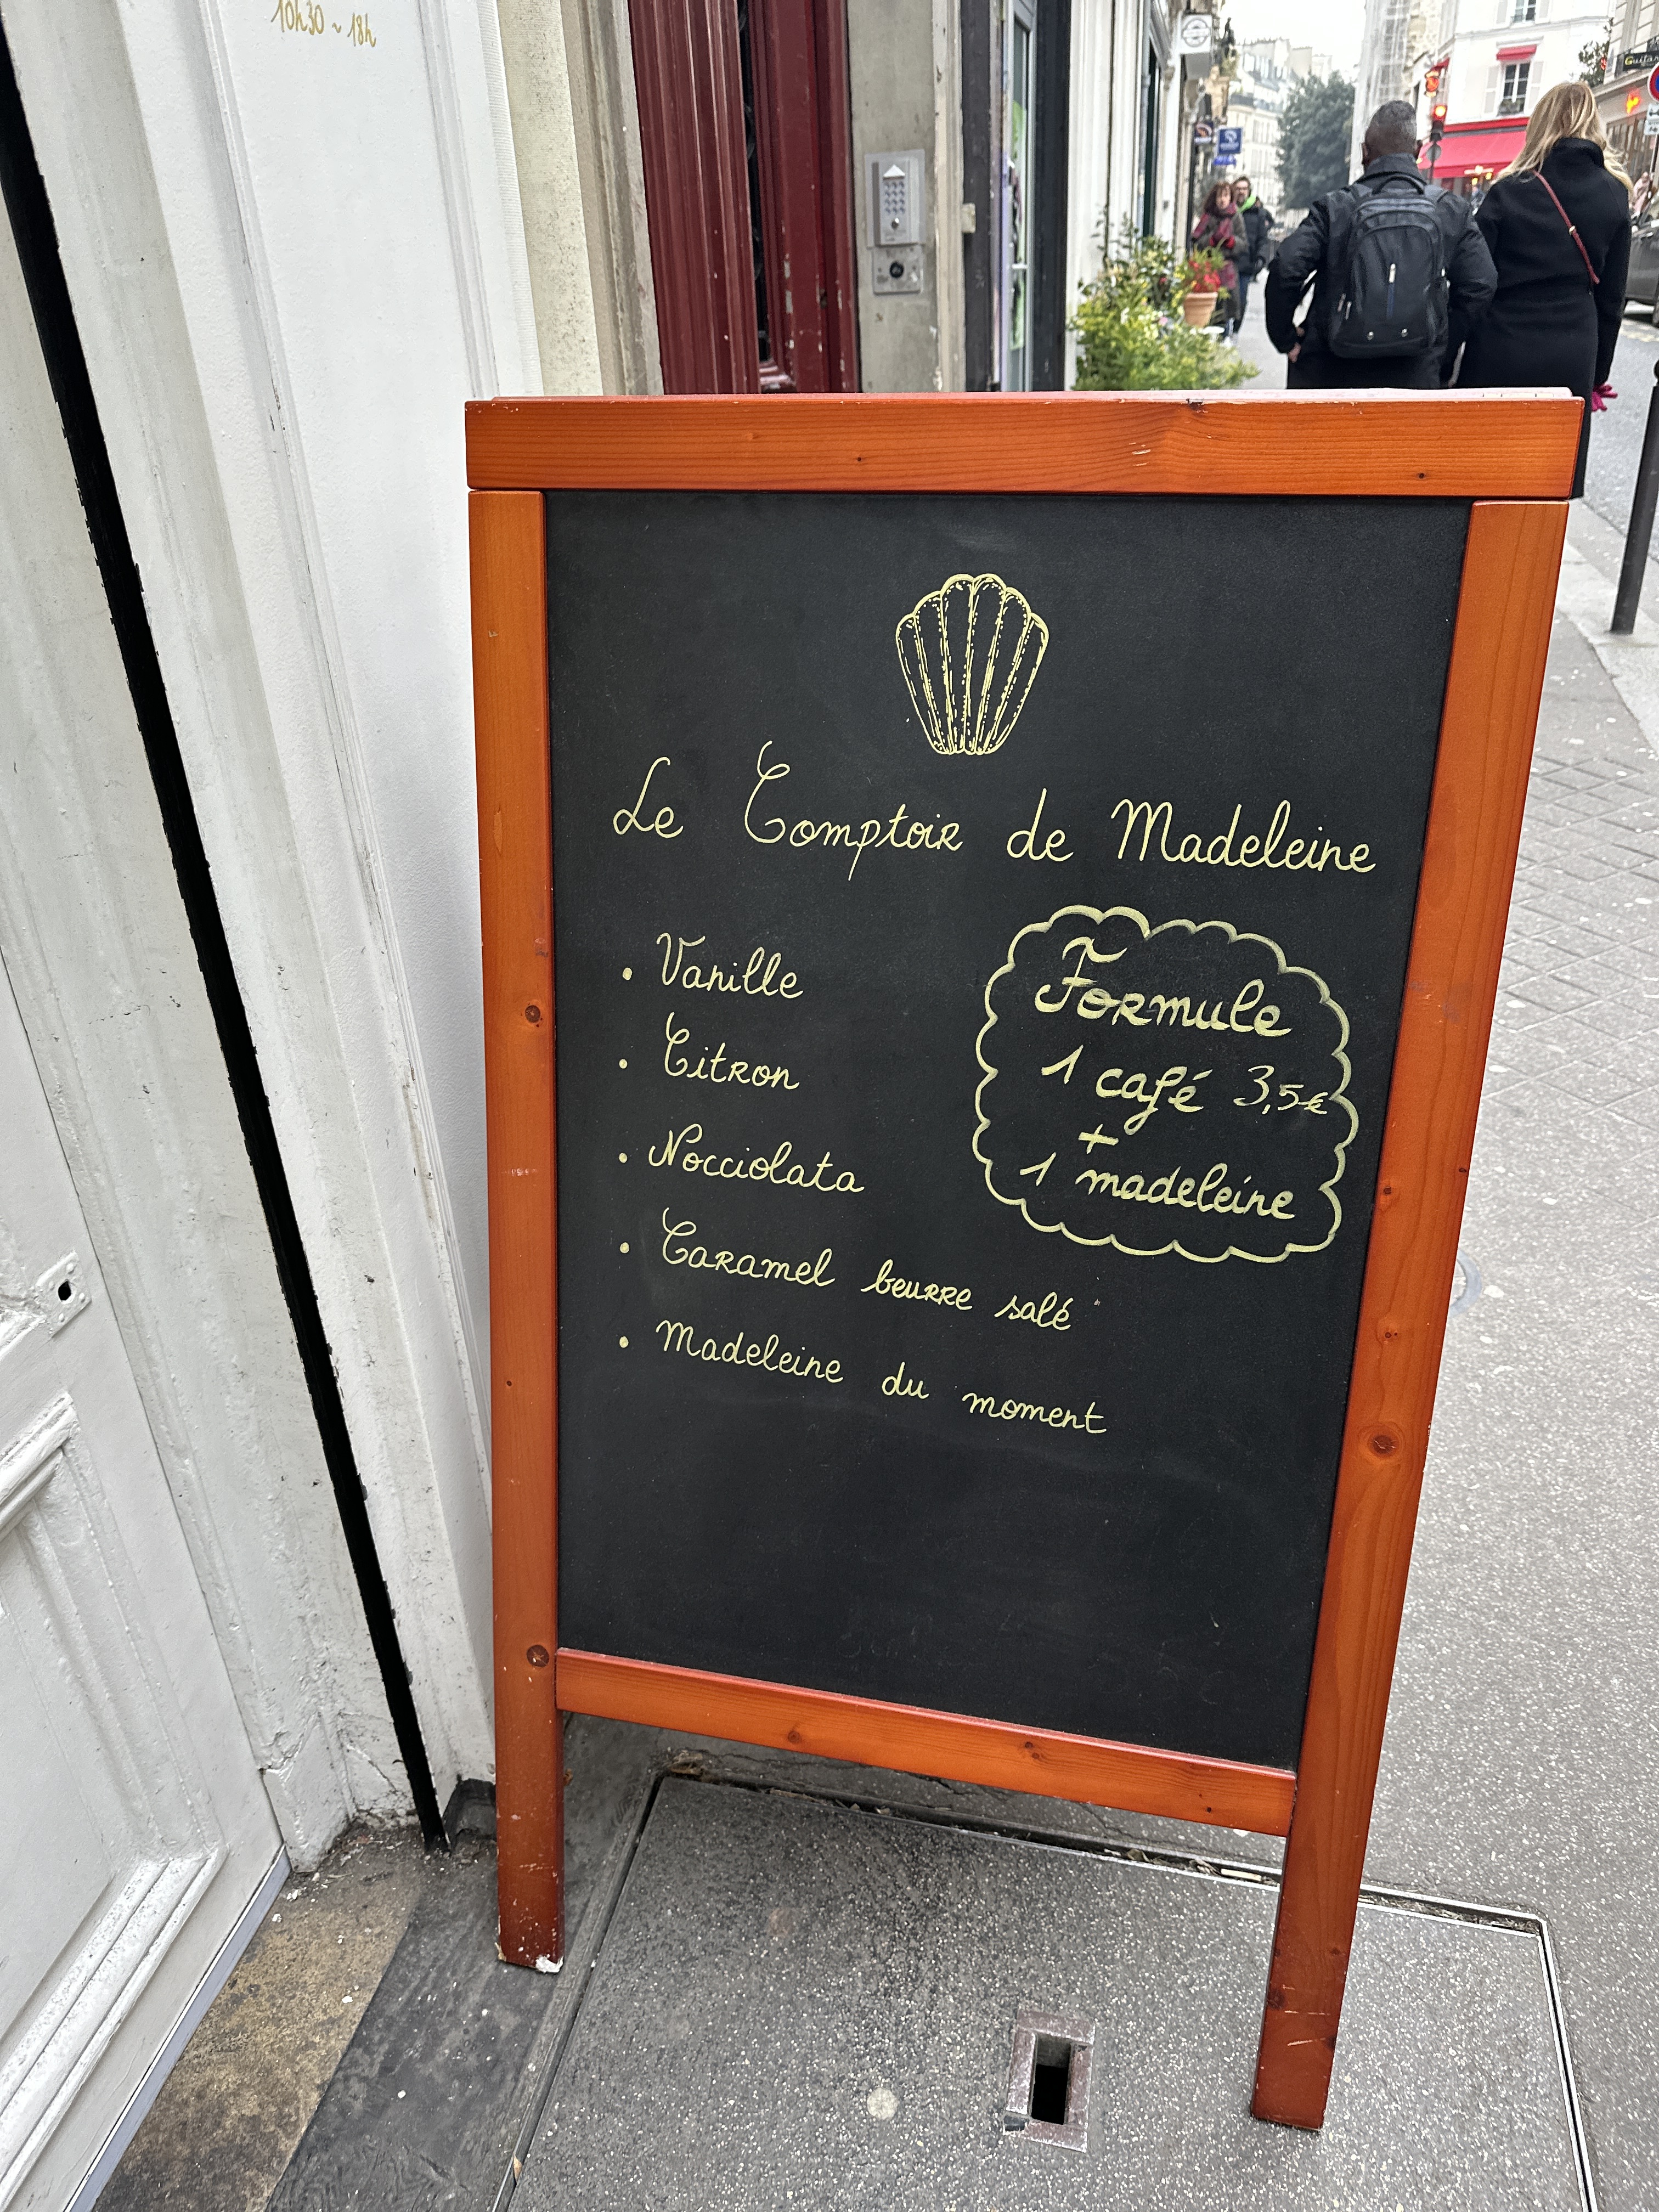 10h30 ~ 18h
Le Comptoir de Madeleine
• Vanille
• Citron
• Nocciolata
• Caramel beurre salé
• Madeleine du moment
Formule
1 café 3,5€
+
1 madeleine